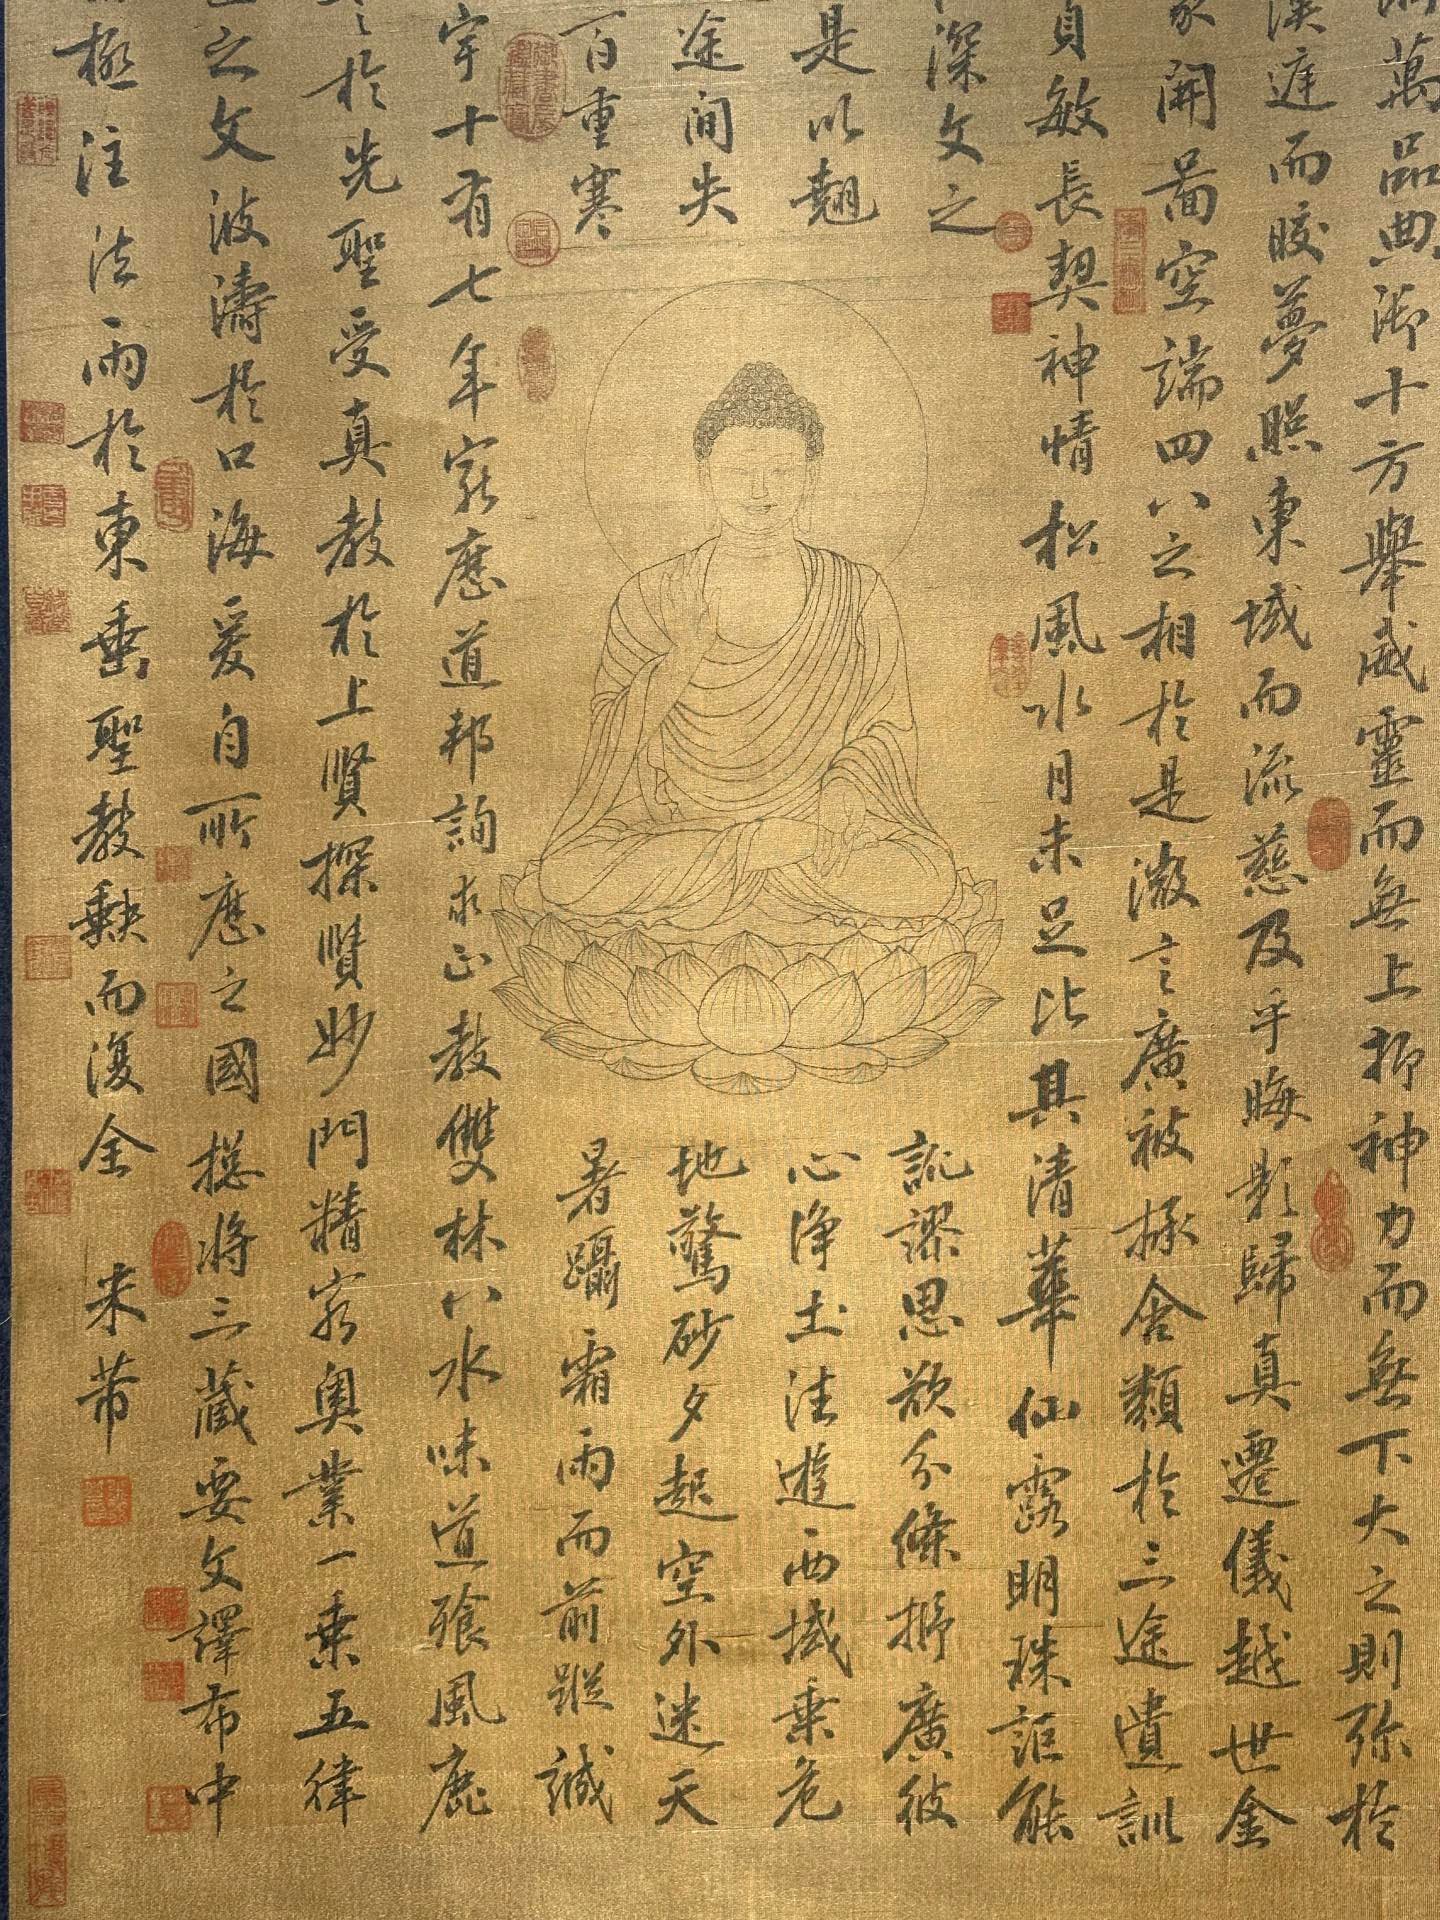 萬品典御十方舉威靈而無上抑神力而無下大之則彌於
漢庭而皎夢照東域而流慈及乎晦影歸真遷儀越世金
象開圖空端四八之相於是微言廣被拯含類於三途遺訓
貞敏長契神情松風水月未足比其清華仙露明珠詎能
深文之訛謬思欲分條廣彼
是以翹心淨土往遊西域乘危
途間失地驚砂夕起空外迷天
百重寒暑躡霜雨而前蹤誠
宇十有七年窮應道邦詢求正教雙林八水味道飡風鹿
於先聖受真教於上賢探賢妙門精窮奧業一乘五律
之文波濤於口海爰自所應之國總將三藏要文譯布中
極注法雨於東垂聖教缺而復全 米芾